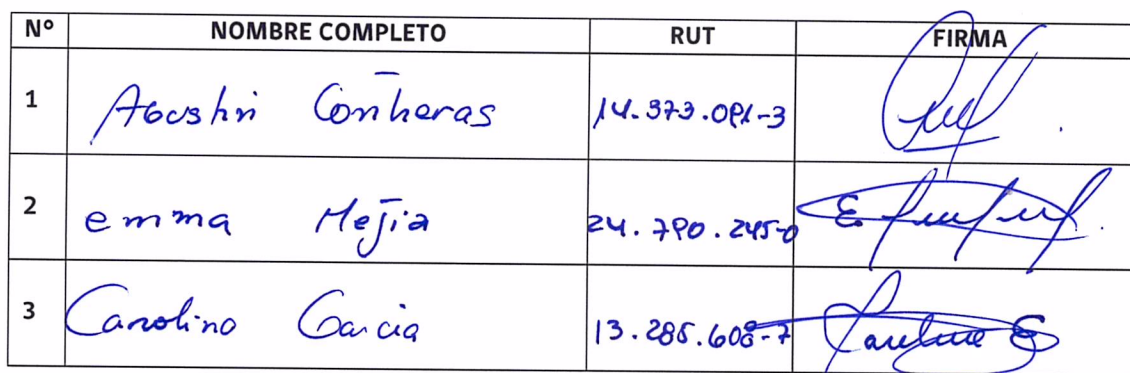 Nº NOMBRE COMPLETO RUT FIRMA
1 Agustin Contreras 14.373.091-3
2 emma Mejia 24.790.245-0
3 Carolina Garcia 13.285.608-7